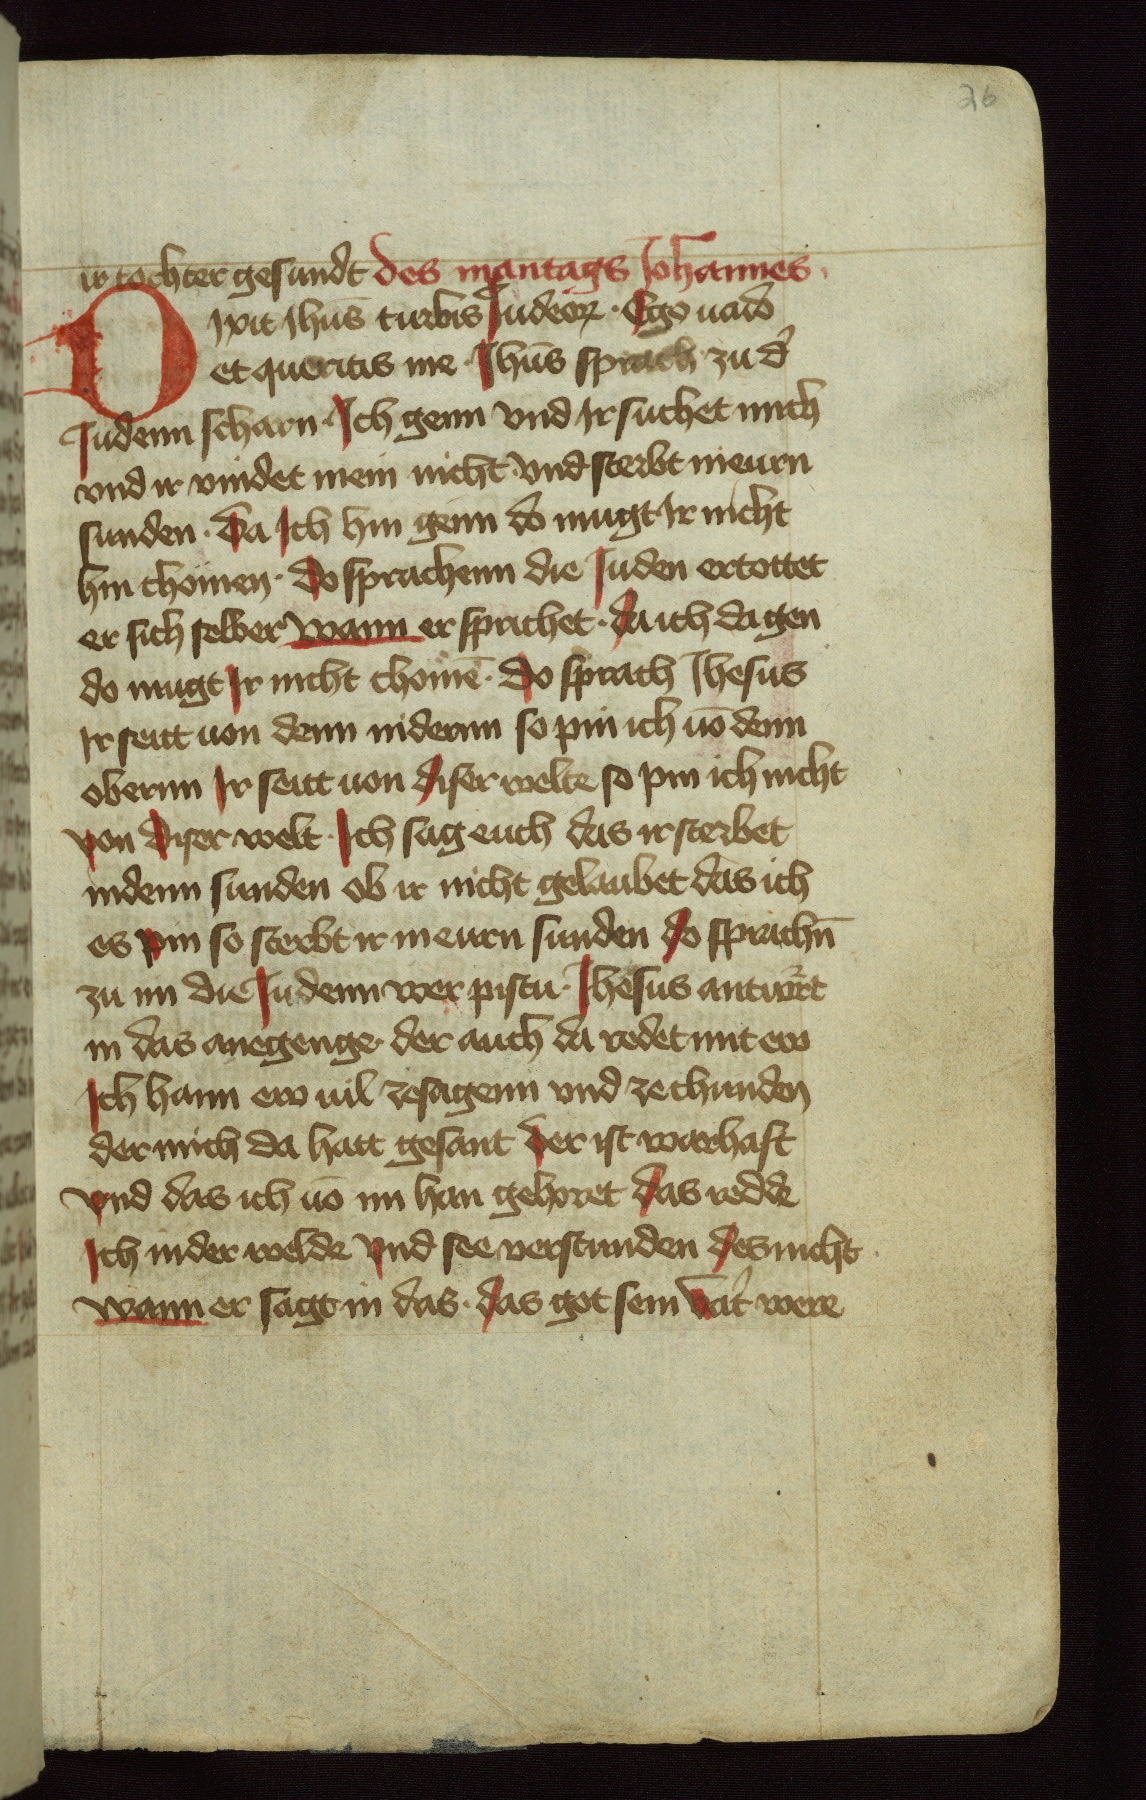 26
ir tochter gesundt des mantags Johannes.
Dixit Jhūs turbis Judeoꝝ · Ego uado
et queritis me · Jhūs sprach zu d̕
Judenn scharn · Ich genn vnd Ir suchet mich
vnd ir vindet mein nicht · vnd sterbt in eurn
sunden · Da Ich hin genn do mugt Ir nicht
hin chomen · do sprachenn die Juden ertottet
er sich selber wann er sprichet · da ich da gen
do mugt Ir nicht chomē · Do sprach Jhesus
Ir seitt von denn nidernn so pin ich uō denn
obernn Ir seitt von diser welte so pin ich nicht
von diser welt · Ich sag euch das ir sterbet
indenn sunden ob ir nicht gelaubet das ich
es pin so sterbt ir in eurn sunden do sprachn̄
zu im die Judenn wer pistu · Jhesus antwort
in das anegenge der auch da redet mit ew
Ich hann ew uil ze sagenn vnd ze chunden
der mich da hatt gesant der ist warhaft
vnd das ich uō im han gehoret das redde
Ich in der welde vnd see verstunden des nicht
wann er sagt in das · das got sein vat̕ were